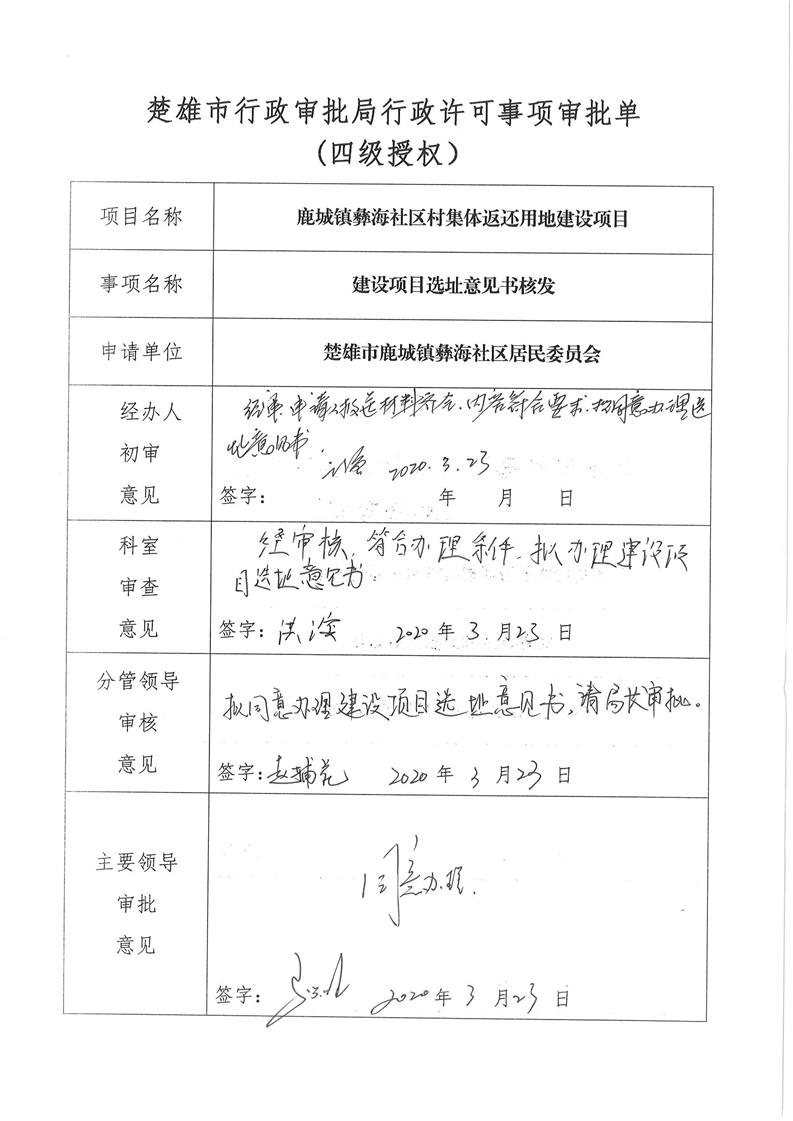 楚雄市行政审批局行政许可事项审批单
(四级授权)
项目名称
鹿城镇彝海社区村集体返还用地建设项目
事项名称
建设项目选址意见书核发
申请单位
楚雄市鹿城镇彝海社区居民委员会
经办人
初审
意见
经审,申请人报送材料齐全、内容符合要求,拟同意办理选
址意见书.
2020.3.23
签字: 年 月 日
科室
审查
意见
经审核,符合办理条件,拟办理建设项
目选址意见书.
签字: 洪 2020年3月23日
分管领导
审核
意见
拟同意办理建设项目选址意见书,请局长审批。
签字:赵 2020年3月23日
主要领导
审批
意见
同意办理.
签字: 2020年3月23日